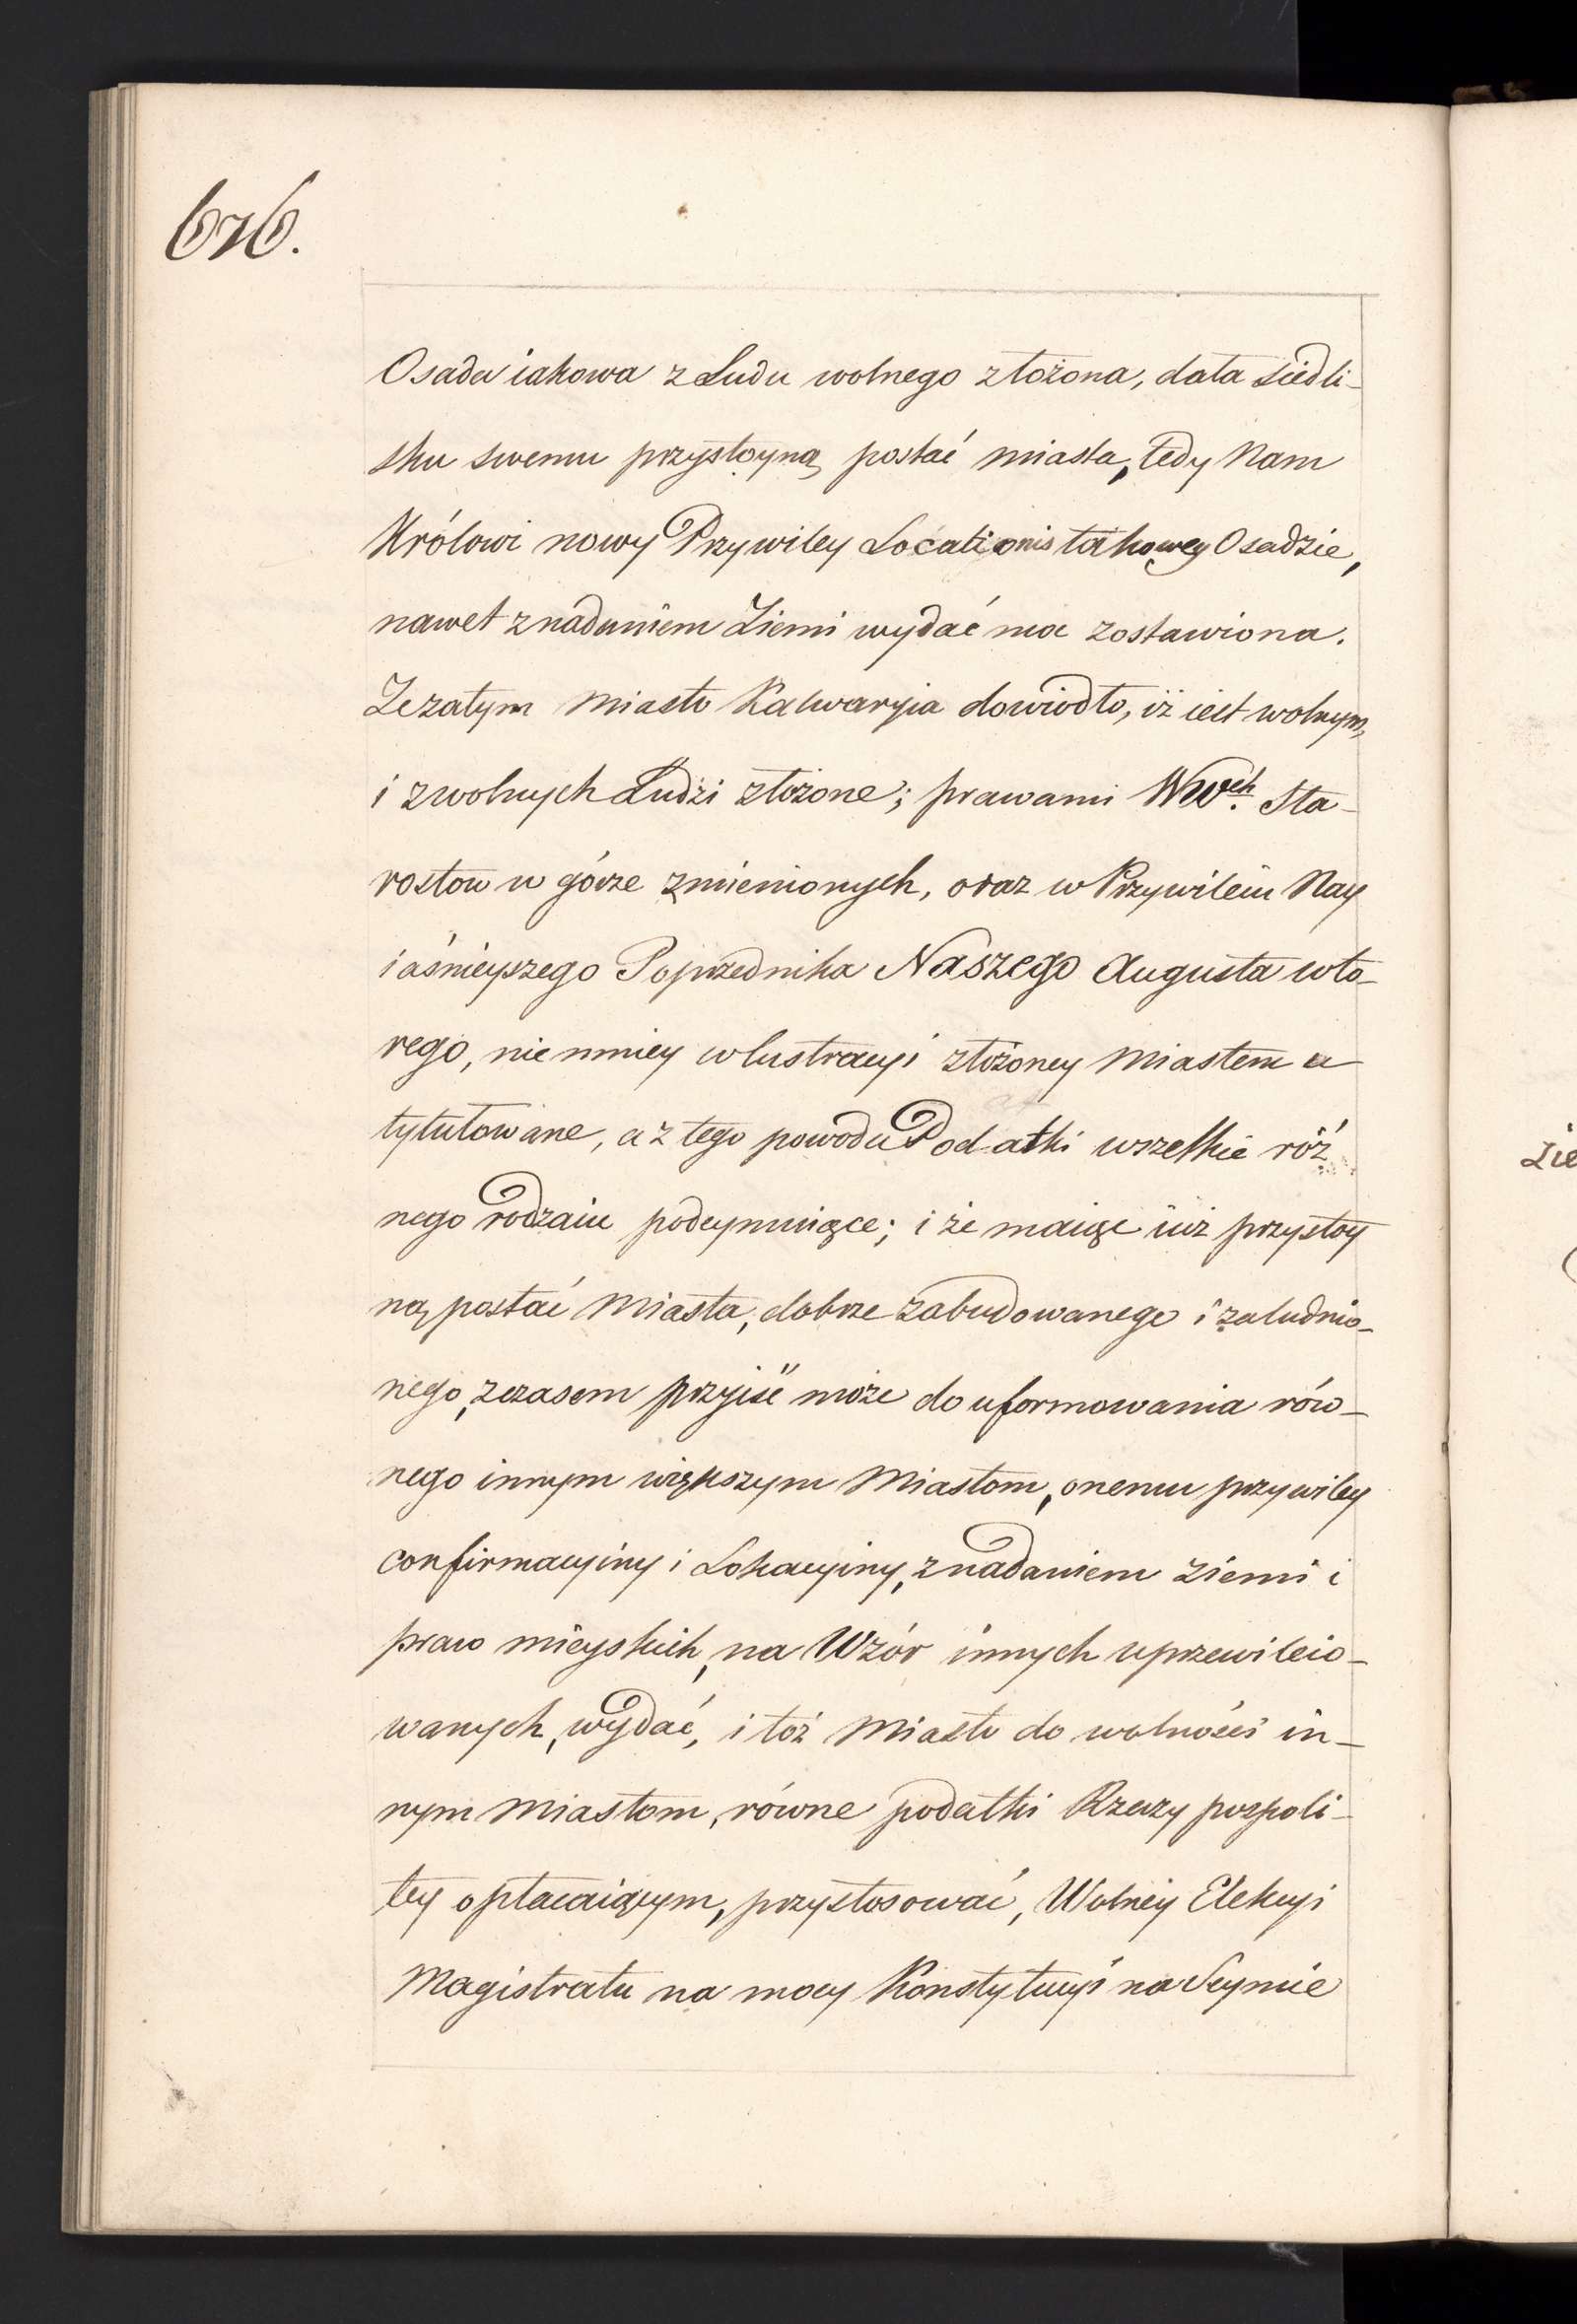 676.
Osada iakowa z Ludu wolnego złożona, dała siedli-
sku swemu przystoyną postać miasta, tedy Nam
Królowi nowy Przywiley Locationis takowey Osadzie,
nawet z nadaniem Ziemi wydać moc zostawiona.
Ze zatym Miasto Kalwaryia dowiodło, iż iest wolnym,
i z wolnych Ludzi złożone; prawami WWch. Sta-
rostow w górze zmienionych, oraz w Przywileiu Nay
iaśnieyszego Poprzednika Naszego Augusta wto-
rego, nie mniey w lustracyi złożoney Miastem u
tytułowane, a z tego powodu Podatki wszelkie róż
nego rodzaiu podeymuiące; i że maiąc iuż przystoy
ną postać Miasta, dobrze zabudowanego i zaludnio-
nego, z czasem przyiść może do uformowania rów-
nego innym większym Miastom, onemu przywiley
confirmacyiny i Lokacyiny, z nadaniem Ziemi i
praw mieyskich, na Wzór innych uprzewileio-
wanych, wydać, i toż Miasto do wolności in-
nym Miastom, równe podatki Rzeczy pospoli-
tey opłacaiącym, przystosować, Wolney Elekcyi
Magistratu na mocy Konstytucyi na Seymie